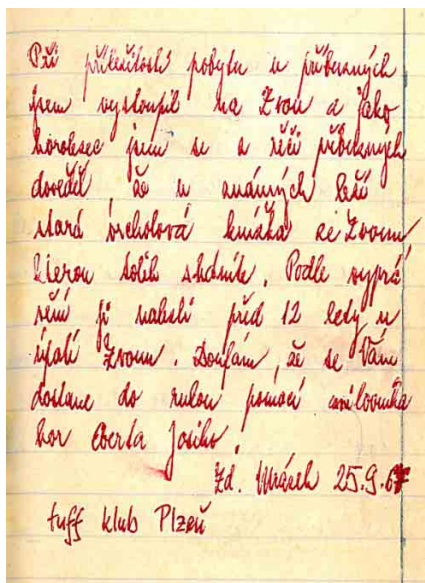 Při příležitosti pobytu u příbuzných
jsem vystoupil na Zvon a jako
horolezec jsem se z řečí příbuzných
dověděl že u známých leží
stará vrcholová knížka ze Zvonu,
kterou tolik sháníte. Podle vyprá
vění ji nalezli před 12 ledy u
úpatí Zvonu. Doufám, že se Vám
dostane do rukou pomocí milovníka
hor Eberta Josího.
Zd. 25.9.67
tuff klub Plzeň